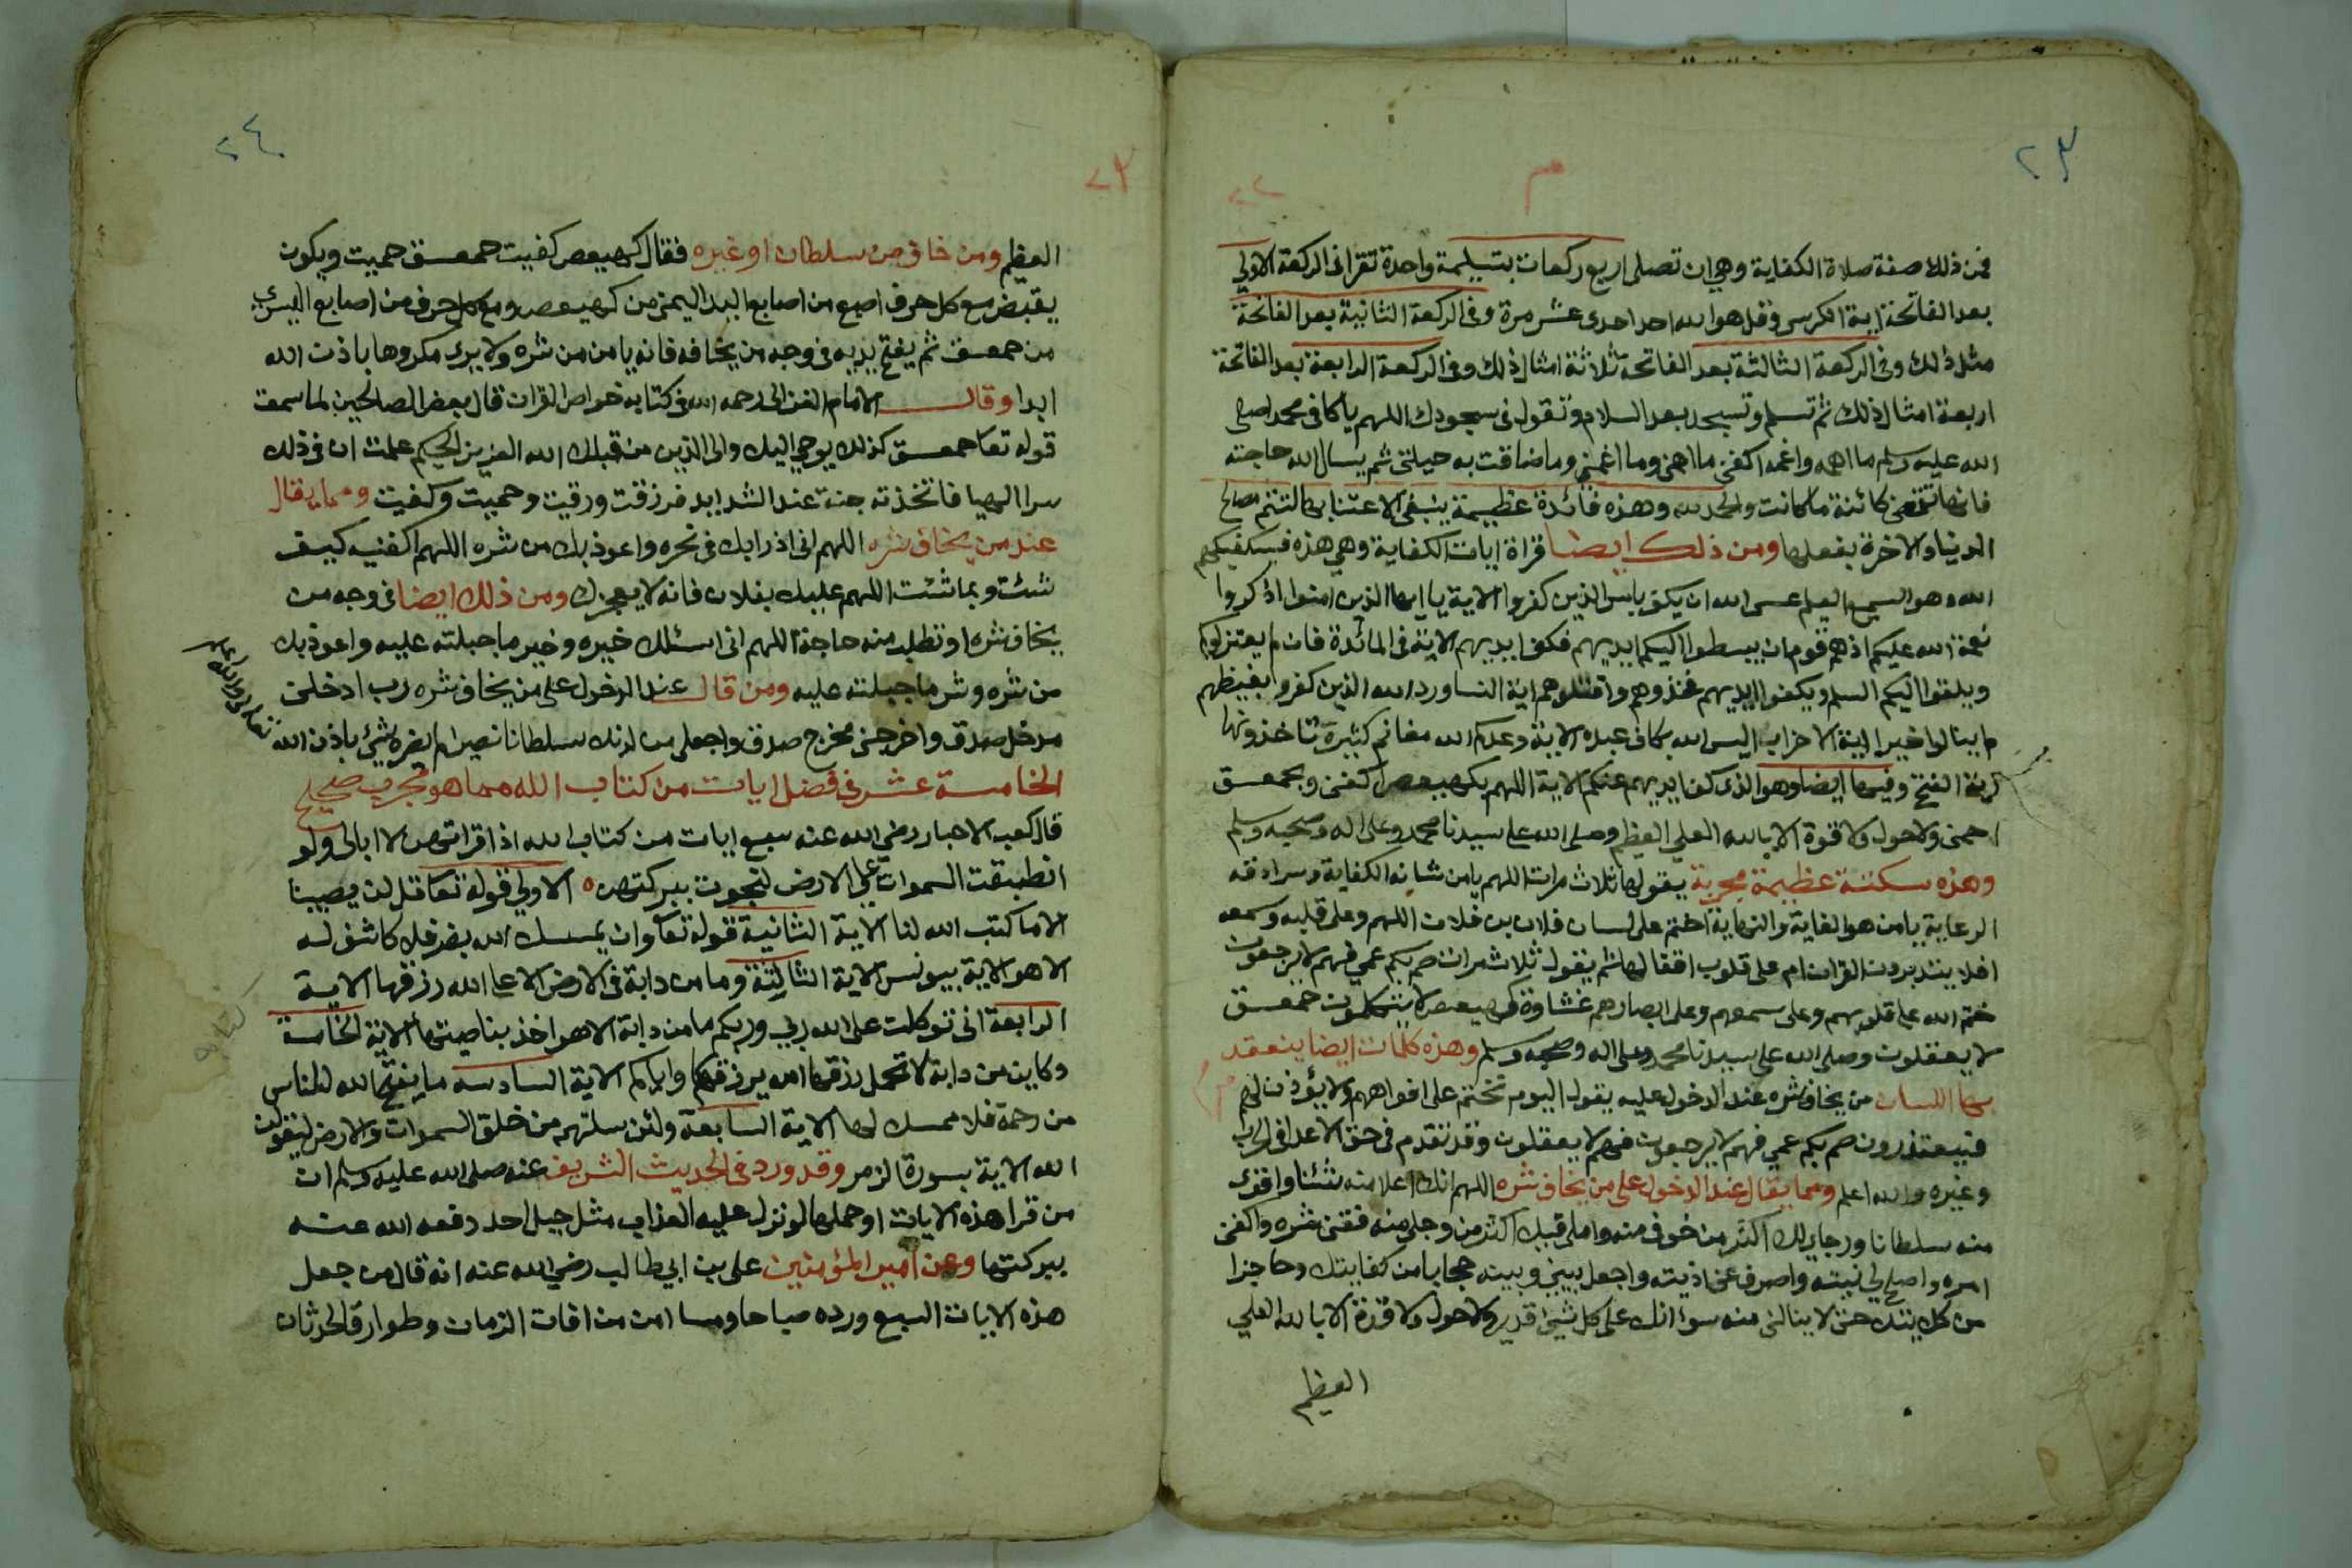 ٢٣
٢٢
م
فمن ذلك صفة صلاة الكفاية وهي ان تصلي اربع ركعات بتسليمة واحدة تقرا في الركعة الاولي
بعد الفاتحة اية الكرسي وقل هو الله احد احدى عشر مرة وفي الركعة الثانية بعد الفاتحة
مثل ذلك وفي الركعة الثالثة بعد الفاتحة ثلاثة امثال ذلك وفي الركعة الرابعة بعد الفاتحة
اربعة امثال ذلك ثم تسلم وتسجد بعد السلام وتقول في سجودك اللهم يا كافي محمد صلي
الله عليه وسلم ما اهمه واغمه اكفني ما اهمني وما اغمني وما ضاقت به حيلتي ثم يسال الله حاجته
فانها تقضي كائنة ما كانت والحمد لله وهذه فائدة عظيمة ينبغي الاعتنا بها لتتم مصالح
الدنيا والاخرة بفعلها ومن ذلك ايضا قراة ايات الكفاية وهي هذه فسيكفيكهم
الله وهو السميع العليم عسى الله ان يكف باس الذين كفروا الاية يا ايها الذين امنوا اذكروا
نعمة الله عليكم اذ هم قوم ان يبسطوا اليكم ايديهم فكف ايديهم الاية في المائدة فان لم يعتزلوكم
ويلقوا اليكم السلم ويكفوا ايديهم فخذوهم واقتلوهم اية النسا ورد الله الذين كفروا بغيظهم
لم ينالوا خيرا اية الاحزاب اليس الله بكاف عبده الاية وعدكم الله مغانم كثيرة تاخذونها
اية الفتح وفيها ايضا وهو الذي كف ايديهم عنكم الاية اللهم بكهيعص اكفني وبحمعسق
احمني ولا حول ولا قوة الا بالله العلي العظيم وصلي الله علي سيدنا محمد وعلى اله وصحبه وسلم
وهذه سكتة عظيمة مجربة يقولها ثلاث مرات اللهم يا من شانه الكفاية وسرادقه
الرعاية يا من هو الغاية والنهاية اختم على لسان فلان بن فلان اللهم وعلى قلبه وسمعه
افلا يتدبرون القران ام على قلوب اقفالها ثم يقول ثلاث مرات صم بكم عمي فهم لا يرجعون
ختم الله على قلوبهم وعلى سمعهم وعلى ابصارهم غشاوة كهيعص لا يتكلمون حمعسق
لا يعقلون وصلى الله على سيدنا محمد وعلى اله وصحبه وسلم وهذه كلمات ايضا ينعقد
بها اللسان من يخاف شره عند الدخول عليه يقول اليوم نختم على افواههم ولا يؤذن لهم
فيعتذرون صم بكم عمي فهم لا يرجعون فهم لا يعقلون وقد تقدم في حق الاعدا في الحرب
وغيره والله اعلم ومما يقال عند الدخول على من يخاف شره اللهم انك اعلا منه شئنا واقوى
منه سلطانا ورجاي لك اكثر من خوفي منه واملي قبلك اكثر من وجلي منه فقني شره واكفني
امره واصلح لي نيته واصرف عني اذيته واجعل بيني وبينه حجابا من كفايتك وحاجزا
من كل حتى لا ينالني منه سوء انك على كل شيئ قدير ولا حول ولا قوة الا بالله العلي
العظيم
٢٤
٢٣
العظيم ومن خاف من سلطان او غيره فقال كهيعص كفيت حمعسق حميت ويكون
يقبض مع كل حرف اصبع من اصابع اليد اليمنى من كهيعص ومع كل حرف من اصابع اليسرى
من حمعسق ثم يفتح يديه في وجه من يخافه فانه يامن من شره ولا يرى مكروها باذن الله
ابدا وقال الامام الغزالي رحمه الله في كتابه خواص القران قال بعض الصالحين لما سمعت
قوله تعا حمعسق كذلك يوحي اليك والى الذين من قبلك الله العزيز الحكيم علمت ان في ذلك
سرا الهيا فاتخذته جنة عند الشدايد فرزقت ورقيت وحميت وكفيت ومما يقال
عند من يخاف شره اللهم اني اذرا بك في نحره واعوذ بك من شره اللهم اكفنيه كيف
شئت وبما شئت اللهم عليك بفلان فانه لا يعجزك ومن ذلك ايضا في وجه من
يخاف شره او تطلب منه حاجة اللهم اني اسئلك خيره وخير ما جبلته عليه واعوذ بك
من شره وشر ما جبلته عليه ومن قال عند الدخول على من يخاف شره رب ادخلني
مدخل صدق واخرجني مخرج صدق واجعلي من لدنك سلطانا نصيرا لم يضره شيئ باذن الله
الخامسة عشر في فضل ايات من كتاب الله مما هو مجرب صحيح
قال كعب الاحبار رضي الله عنه سبع ايات من كتاب الله اذا قراتهن لا ابالى ولو
انطبقت السموات علي الارض لنجوت ببركتهن ه الاولي قوله تعا قل لن يصيبنا
الا ما كتب الله لنا الاية الثانية قوله تعا وان يمسسك الله بضر فلا كاشف له
الا هو الاية بيونس الاية الثالثة وما من دابة في الارض الا على الله رزقها الاية
الرابعة اني توكلت على الله ربي وربكم ما من دابة الا هو اخذ بناصيتها الاية الخامسة
وكاين من دابة لا تحمل رزقها الله يرزقها واياكم الاية السادسه ما يفتح الله للناس
من رحمة فلا ممسك لها الاية السابعة ولئن سلتهم من خلق السموات والارض ليقولن
الله الاية بسورة الزمر وقد ورد في الحديث الشريف عنه صلى الله عليه وسلم ان
من قرا هذه الايات او حملها لو نزل عليه العذاب مثل جبل احد رفعه الله عنه
ببركتها وعن امير المؤمنين علي بن ابي طالب رضي الله عنه انه قال من جعل
هذه الايات السبع ورده صباحا ومسا امن من افات الزمان وطوارق الحدثان